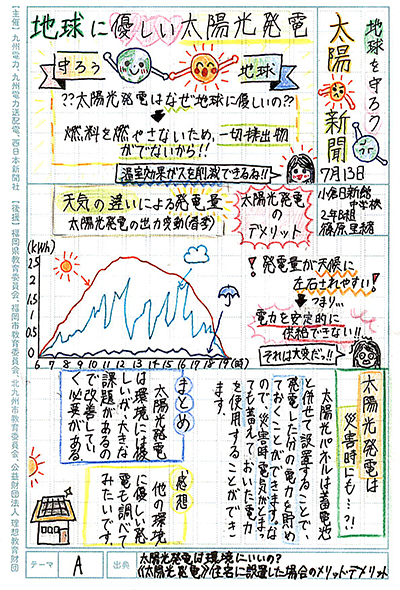 地球に優しい太陽光発電
地球を守ろう
太陽新聞
7月13日
小倉日新館
中学校
2年B組
篠原里緒
守ろう
地球
??太陽光発電はなぜ地球に優しいの??
燃料を燃やさないため、一切排出物
がでないから!!
温室効果ガスを削減できるね!!
天気の違いによる発電量
太陽光発電の出力変動(春季)
(kWh)
2.5
2
1.5
1
0.5
0
6 7 8 9 10 11 12 13 14 15 16 17 18 19(時)
太陽光発電
の
デメリット
発電量が天候に
左右されやすい!
つまり…
電力を安定的に
供給できない!!
それは大変だっ!!
太陽光発電は
災害時にも…?!
太陽光パネルは蓄電池
と併せて設置することで
発電した分の電力を貯め
ておくことができます。な
ので、災害時電気がとまっ
ても蓄えておいた電力
を使用することができ
ます。
まとめ
太陽光発電
は環境には優
しいが、大きな
課題があるの
で改善してい
く必要がある。
感想
他の環境
に優しい発
電も調べて
みたいです。
テーマ
A
出典
太陽光発電は環境にいいの?
《太陽光発電》住宅に設置した場合のメリット・デメリット
【主催】九州電力、九州電力送配電、西日本新聞社
【後援】福岡県教育委員会、福岡市教育委員会、北九州市教育委員会、公益財団法人 理想教育財団